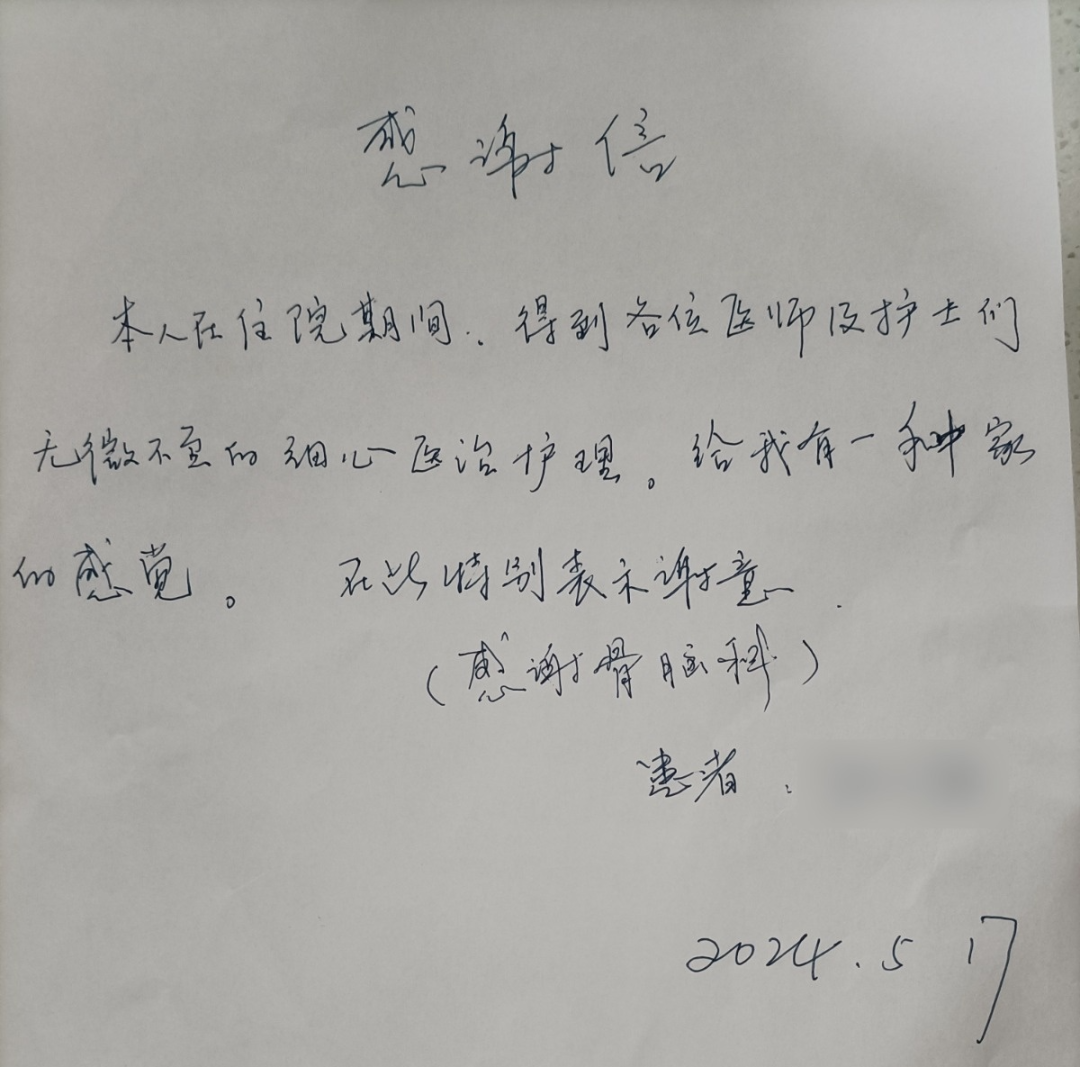 感谢信
本人在住院期间.得到各位医师及护士们
无微不至的细心医治护理。给我有一种家
的感觉。 在此特别表示谢意.
(感谢骨脑科)
患者:
2024.5 17